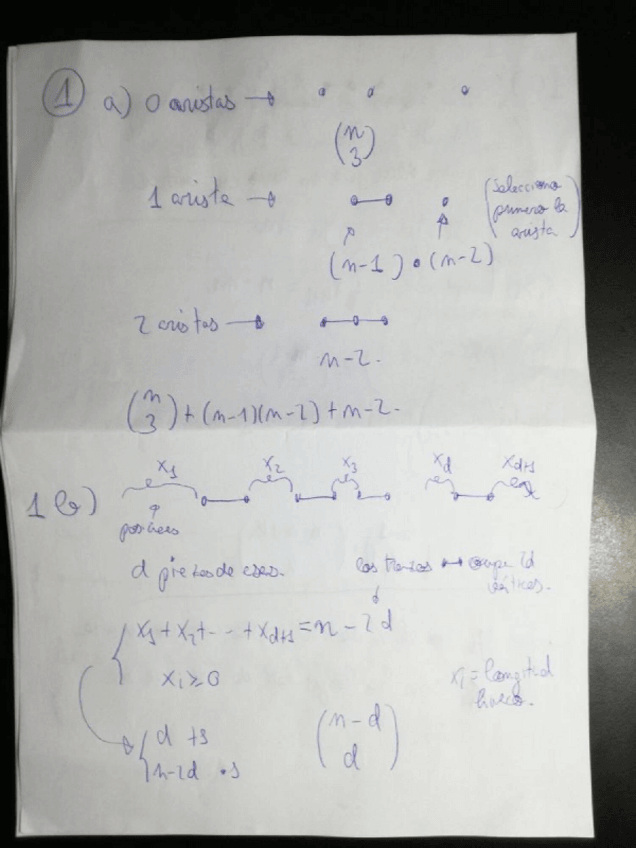 1 a) 0 aristas →
(n 3)
1 arista → (Selecciono primero la arista)
(n-1) • (n-2)
2 aristas →
n-2.
(n 3) + (n-1)(n-2) + n-2.
x1 x2 x3 xd xd+1
1 b)
d piezas de esas. los trozos ↔ 2d
x1 + x2 + ... + xd+1 = n - 2d
xi ≥ 0 xi = longitud hueco.
d +s (n-d d)
n-2d •s